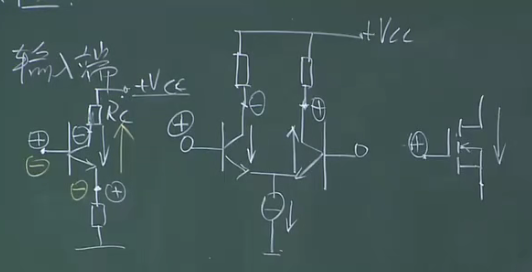 输入端
+Vcc
Rc
+Vcc